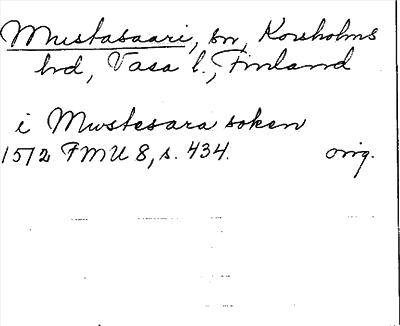 Mustasaari, sn, Korsholms
hrd, Vasa l., Finland
i Mwstesara soken
1512 FMU 8, s. 434. orig.